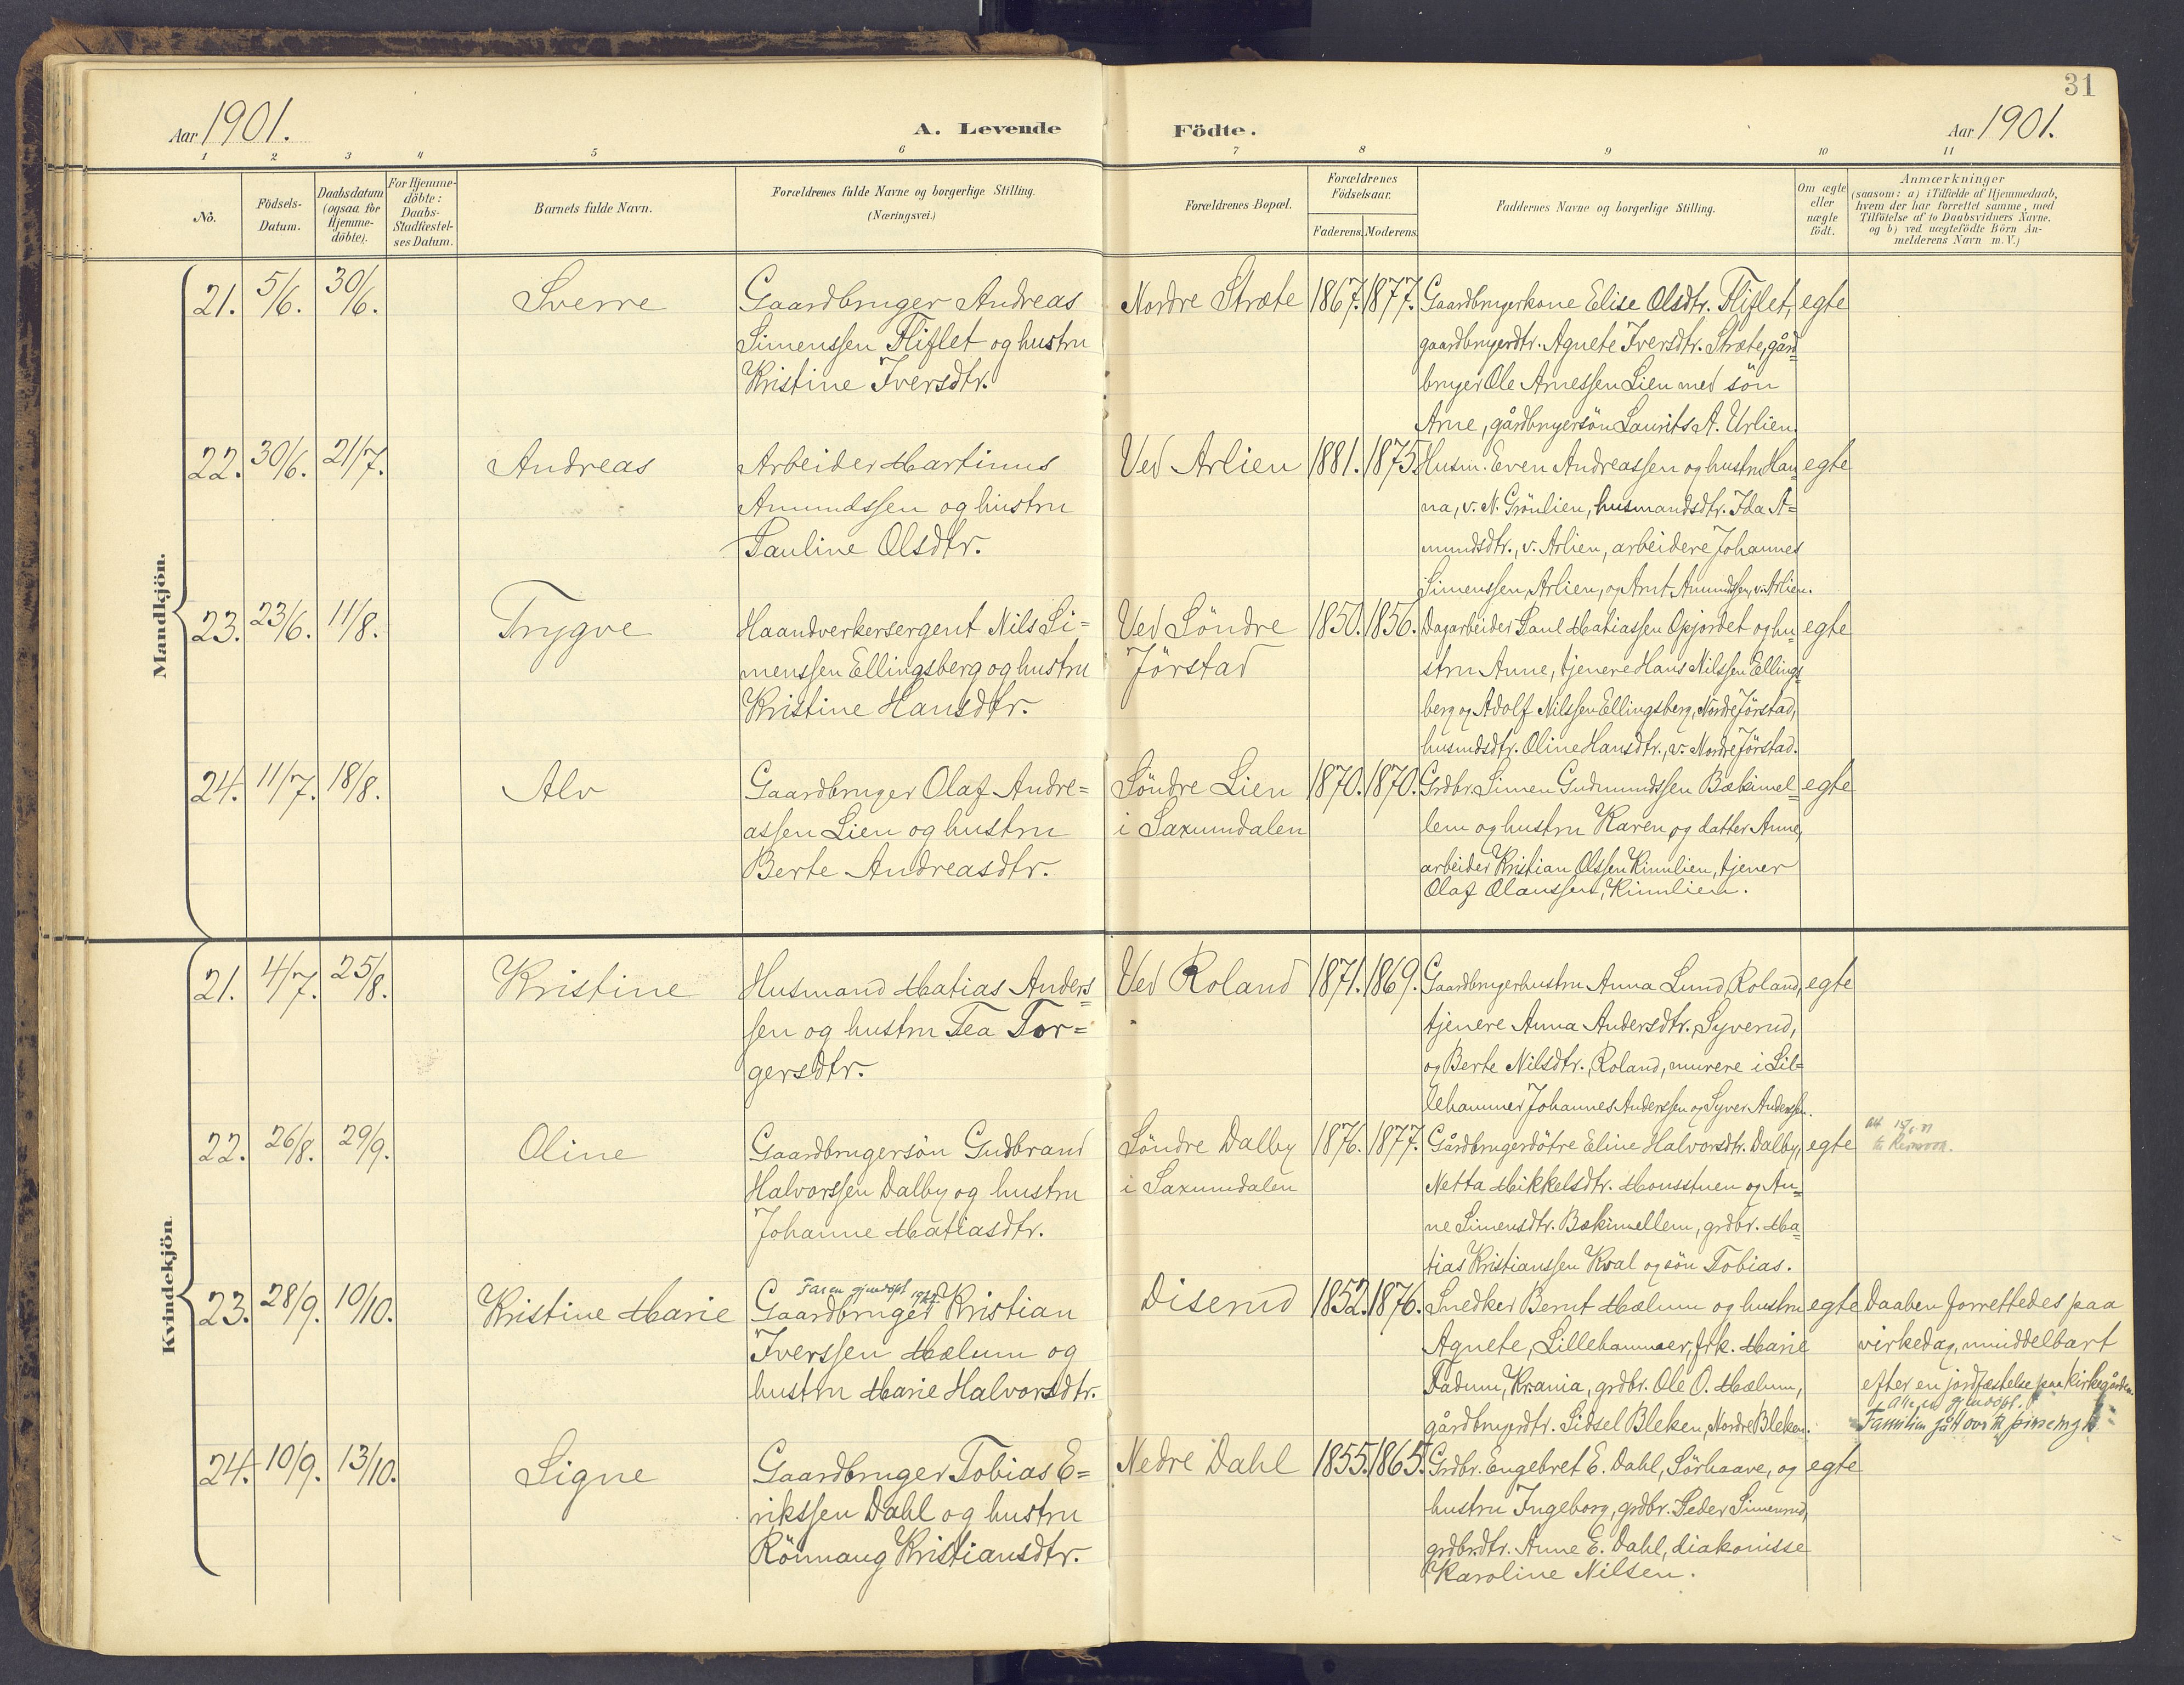 31
Aar 1901.
A. Levende Födte.
Aar 1901.
1 2 3 4 5 6 7 8 9 10 11
No.
Födsels-
Datum.
Daabsdatum
(ogsaa for
Hjemme-
döbte).
For Hjemme-
döbte:
Daabs-
Stadfæstel-
ses Datum.
Barnets fulde Navn.
Forældrenes fulde Navne og borgerlige Stilling.
(Næringsvei.)
Forældrenes Bopæl.
Forældrenes
Födselsaar.
Faderens. Moderens.
Faddernes Navne og borgerlige Stilling.
Om ægte
eller
uægte
födt.
Anmærkninger
(saasom: a) i Tilfælde af Hjemmedaab,
hvem der har forrettet samme, med
Tilföielse af to Daabsvidners Navne.
og b) ved uægtefödte Börn An-
melderens Navn m. V.)
Mandkjön.
21. 5/6. 30/6. Sverre
Gaardbruger Andreas
Simenssen Fliflet og hustru
Kristine Iversdtr.
Nordre Stræte 1867. 1877.
Gaardbrugerkone Elise Olsdtr. Fliflet,
gaardbrugerdtr. Agnete Iversdtr. Stræte, gård=
bruger Ole Arnessen Lien med sön
Arne, gårdbrugersön Laurits A. Urlien.
egte
22. 30/6. 21/7. Andreas
Arbeider Martinus
Amundssen og hustru
Pauline Olsdtr.
Ved Arlien 1881. 1875.
Husm. Even Andreassen og hustru Han
na, v. N. Grönlien, husmandsdtr. Ida A=
mundsdtr., v. Arlien, arbeidere Johannes
Simenssen, Arlien, og Arnt Amundssen, v. Arlien.
egte
23. 23/6. 11/8. Trygve
Haandverkersergent Nils Si=
menssen Ellingsberg og hustru
Kristine Hansdtr.
Ved Söndre
Jörstad
1850. 1856.
Dagarbeider Paul Matiassen Opjordet og hu=
stru Anne, tjenere Hans Nilssen Ellings=
berg og Adolf Nilssen Ellingsberg, Nordre Jörstad,
husmdsdtr. Oline Hansdtr., v. Nordre Jörstad.
egte
24. 11/7. 18/8. Alv
Gaardbruger Olaf Andre=
assen Lien og hustru
Berte Andreasdtr.
Söndre Lien
i Saxumdalen
1870. 1870.
Grdbr. Simen Gudmundssen Bækimel=
lem og hustru Karen og datter Anne,
arbeider Kristian Olssen Kinnlien, tjener
Olaf Olaussen, Kinnlien.
egte
Kvindekjön.
21. 4/7. 25/8. Kristine
Husmand Matias Anders=
sen og hustru Tea Tor=
gersdtr.
Ved Roland 1871. 1869.
Gaardbrugerhustru Anna Lund, Roland,
tjenere Anna Andersdtr. Syverud,
og Berte Nilsdtr., Roland, murere i Lil=
lehammer Johannes Anderssen og Syver Anderssen.
egte
22. 26/8. 29/9. Oline
Gaardbrugersön Gudbrand
Halvorssen Dalby og hustru
Johanne Matiasdtr.
Söndre Dalby
i Saxumdalen
1876. 1877.
Gårdbrugerdötre Eline Halvorsdtr. Dalby,
Netta Mikkelsdtr. Monsstuen og An=
ne Simensdtr. Bækimellem, grdbr. Ma=
tias Kristianssen Kval og sön Tobias.
egte
23. 28/9. 10/10. Kristine Marie
Faren gjendöpt
Gaardbruger Kristian
Iverssen Mælum og
hustru Marie Halvorsdtr.
Diserud 1852. 1876.
Snedker Bernt Mælum og hustru
Agnete, Lillehammer, frk. Marie
Fadum, Krania, grdbr. Ole O. Mælum,
gårdbrugerdtr. Sidsel Bleken, Nordre Bleken.
egte
Daaben forrettedes paa
virkedag, umiddelbart
efter en jordfæstelse paa kirkegården.
gjendöpt.
Familien gått over til pinsemgh
24. 10/9. 13/10. Signe
Gaardbruger Tobias E=
rikssen Dahl og hustru
Rönnaug Kristiansdtr.
Nedre Dahl 1855. 1865.
Grdbr. Engebret E. Dahl, Sörhaave, og
hustru Ingeborg, grdbr. Peder Simenrud,
grdbrdtr. Anne E. Dahl, diakonisse
Karoline Nilsen.
egte